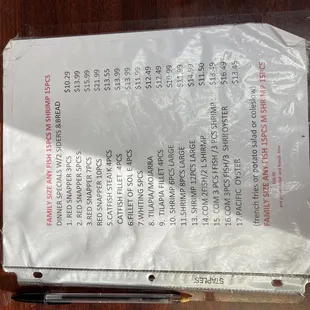 FAMILY SIZE ANY FISH 15PCS M SHRIMP 15PCS
DINNER SPECIALS W/2 SIDERS &BREAD
1. RED SNAPPER 3PCS $10.29
2. RED SNAPPER 5PCS $13.99
3.RED SNAPPER 7PCS $15.99
RED SNAPPER 10PCS $21.99
5.CATFISH STEAK 4PCS $13.55
CATFISH FILLET 4PCS $13.99
6.FILLET OF SOLE 4PCS $13.99
7.WHITING 5PCS $11.99
8. TILAPIA/MOJARRA $12.49
9. TILAPIA FILLET 4PCS $12.49
10.SHRIMP 6PCS LARGE $10.99
11.SHRIMP 8PCS LARGE $11.99
13.SHRIMP 12PCS LARGE $14.99
14.COM.2FISH/2 L SHRIMP $11.50
15. COM 3 PCS FISH /3 PCS SHRIMP
16.COM 3PCS FISH/3 SHR/OYSTER $16.49
17.PACIFIC OYSTER $13.45
(french fries or potatoe salad or coleslaw)
FAMILY SIZE ANY FISH 15PCS M SHRIMP 15PCS
STAPLES